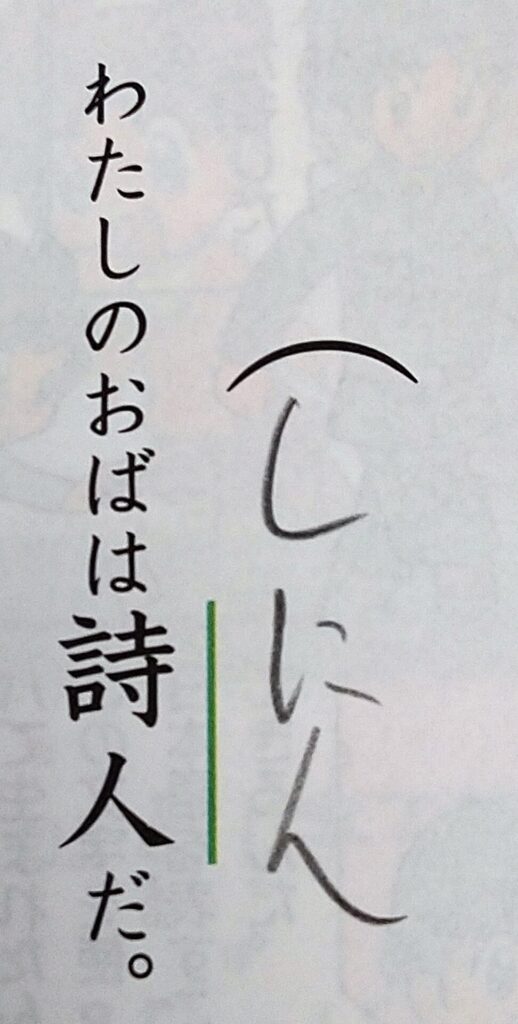 (しにん
わたしのおばは詩人だ。